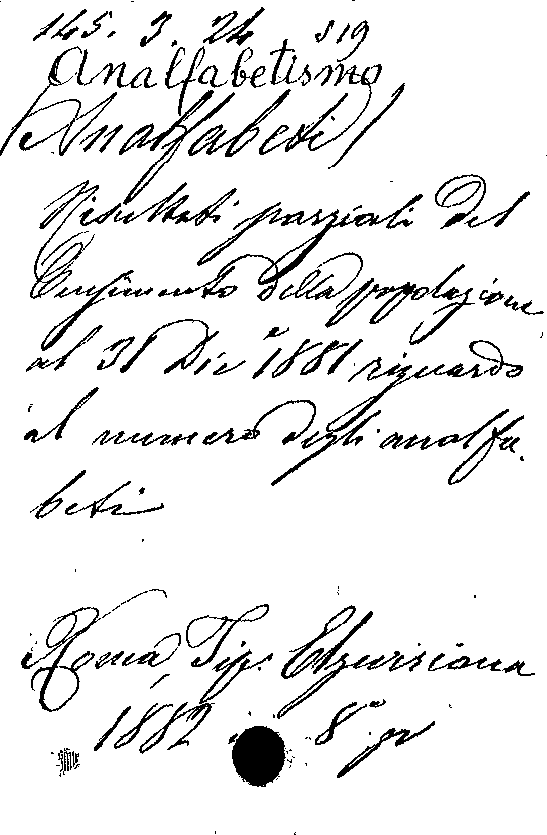 145. 3. 24. S19
Analfabetismo
(Analfabeti)
Risultati parziali del
Censimento della popolazione
al 31 Dice 1881 riguardo
al numero degli analfa-
beti
Roma, Tip. Elzeviriana
1882 in 8° gr